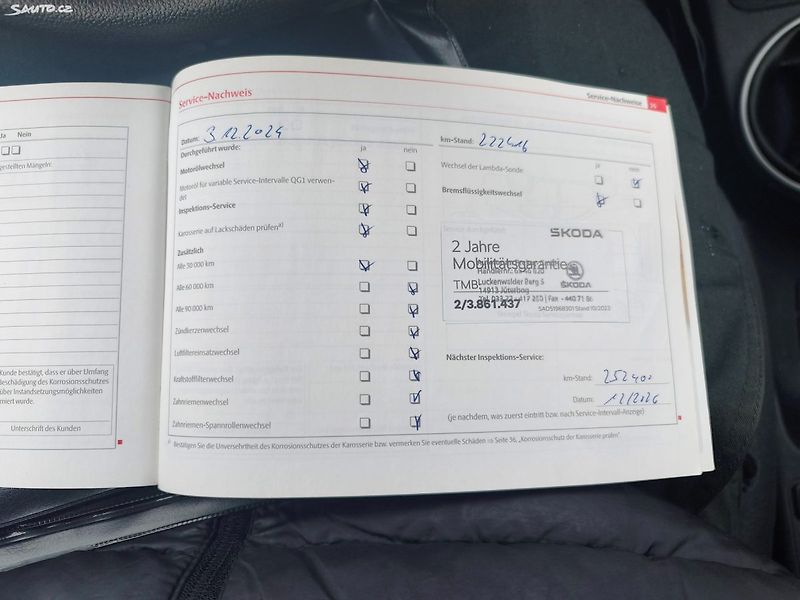 SAUTO.CZ
Ja Nein
gestellten Mängeln:
Kunde bestätigt, dass er über Umfang
Beschädigung des Korrosionsschutzes
über Instandsetzungsmöglichkeiten
rmiert wurde.
Unterschrift des Kunden
Service-Nachweis
Service-Nachweise
Datum: 3.12.2024
km-Stand: 222416
Durchgeführt wurde:
ja nein
Motorölwechsel
Motoröl für variable Service-Intervalle QG1 verwen-
det
Inspektions-Service
Karosserie auf Lackschäden prüfen a)
Zusätzlich
Alle 30 000 km
Alle 60 000 km
Alle 90 000 km
Zündkerzenwechsel
Luftfiltereinsatzwechsel
Kraftstofffilterwechsel
Zahnriemenwechsel
Zahnriemen-Spannrollenwechsel
ja nein
Wechsel der Lambda-Sonde
Bremsflüssigkeitswechsel
ŠKODA
2 Jahre
Mobilitätsgarantie
Luckenwalder Berg 5
TMB
14913 Jüterbog
ŠKODA
2/3.861.437
SAD51968301 Stand 10/2023
Nächster Inspektions-Service:
km-Stand: 252400
Datum: 12/2026
(je nachdem, was zuerst eintritt bzw. nach Service-Intervall-Anzeige)
a) Bestätigen Sie die Unversehrtheit des Korrosionsschutzes der Karosserie bzw. vermerken Sie eventuelle Schäden in Seite 36, „Korrosionsschutz der Karosserie prüfen“.